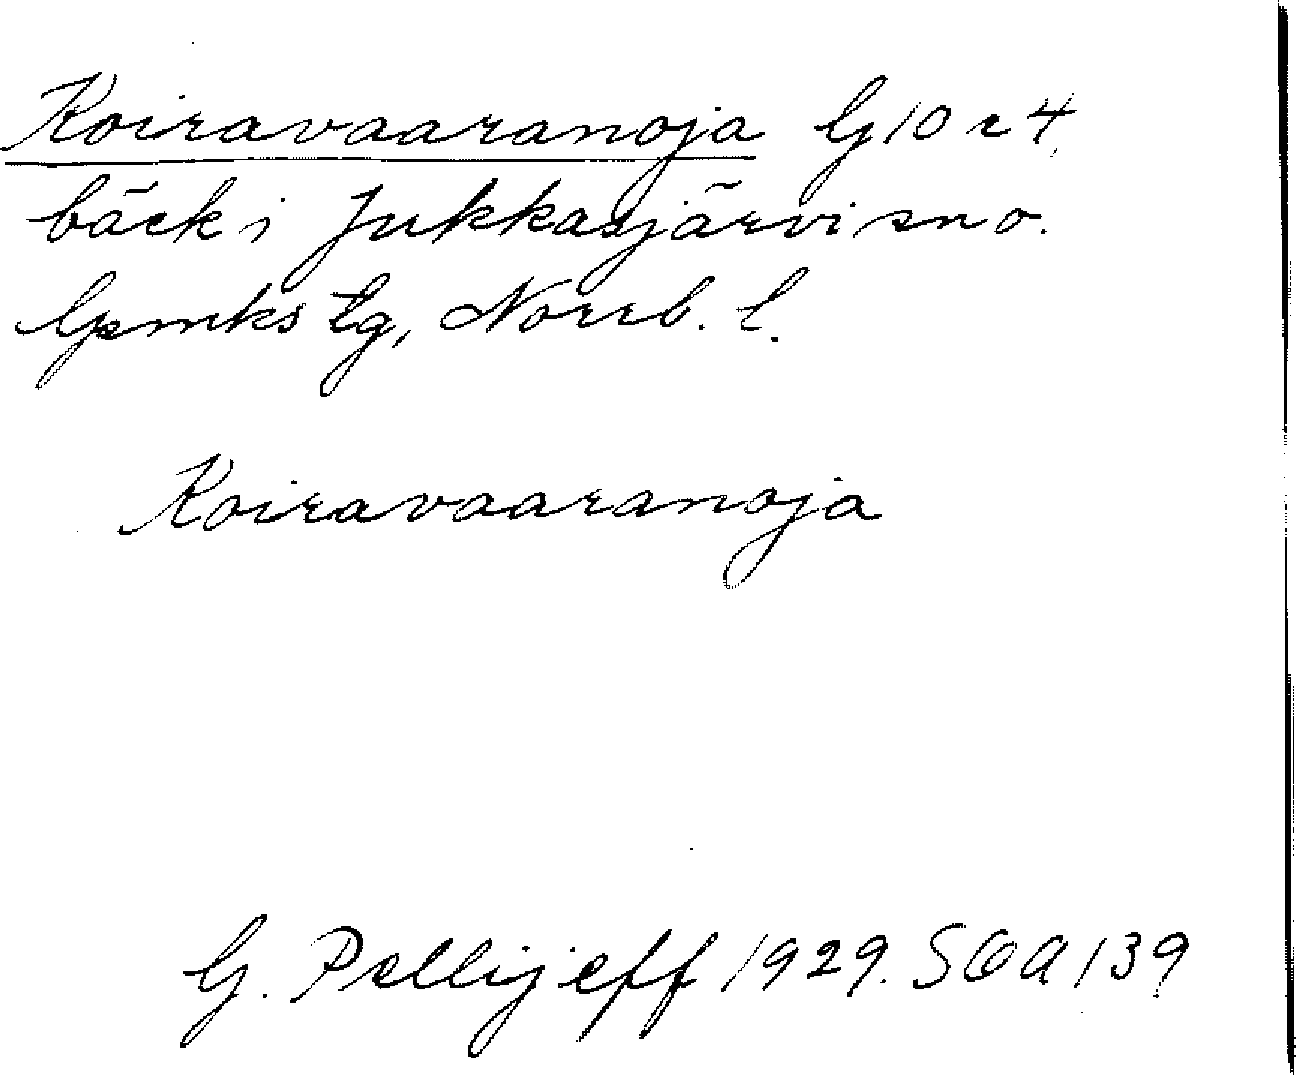 Koiravaaranoja G 10 c 4,
bäck i Jukkasjärvi sn o.
lpmks tg, Norrb. l.
Koiravaaranoja
G. Pellijeff 1929. SOA 139